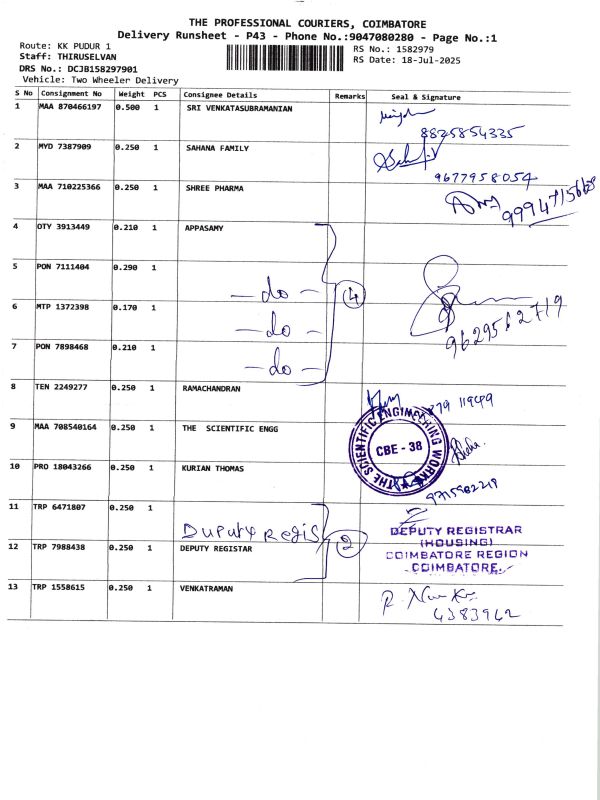 THE PROFESSIONAL COURIERS, COIMBATORE
Delivery Runsheet - P43 - Phone No.:9047080280 - Page No.:1
Route: KK PUDUR 1
RS No.: 1582979
Staff: THIRUSELVAN
RS Date: 18-Jul-2025
DRS No.: DCJB158297901
Vehicle: Two Wheeler Delivery
S No Consignment No Weight PCS Consignee Details Remarks Seal & Signature
1 MAA 870466197 0.500 1 SRI VENKATASUBRAMANIAN
8825854335
2 MYD 7387909 0.250 1 SAHANA FAMILY
9677958054
3 MAA 710225366 0.250 1 SHREE PHARMA
4 OTY 3913449 0.210 1 APPASAMY
5 PON 7111404 0.290 1
-do- 4
6 MTP 1372398 0.170 1
-do- 9629562719
7 PON 7898468 0.210 1
-do-
8 TEN 2249277 0.250 1 RAMACHANDRAN
9 MAA 708540164 0.250 1 THE SCIENTIFIC ENGG
THE SCIENTIFIC ENGINEERING WORKS
CBE - 38
10 PRO 18043266 0.250 1 KURIAN THOMAS
11 TRP 6471807 0.250 1
DUPUTY REGIS 2
DEPUTY REGISTRAR
(HOUSING)
12 TRP 7988438 0.250 1 DEPUTY REGISTAR
COIMBATORE REGION
COIMBATORE.
13 TRP 1558615 0.250 1 VENKATRAMAN
6383962